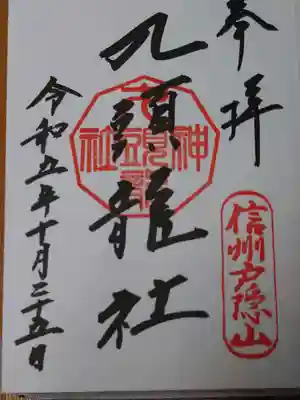 奉拝
信州戸隠山
九頭龍社
令和五年十月二十五日